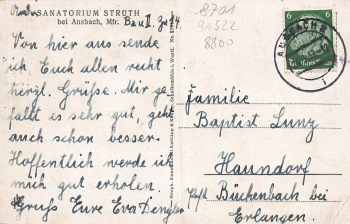 SANATORIUM STRÜTH
bei Ansbach, Mfr. Bau II Zi 24
Von hier aus sende
ich Euch allen recht
herzl. Grüße. Mir ge-
fällt es sehr gut, geht
auch schon besser.
Hoffentlich werde ich
mich gut erholen.
Gruß Eure Eva Dengler
8701
91322
8800
ANSBACH
6
6
Familie
Baptist Lunz
Haundorf
Post Büchenbach bei
Erlangen.